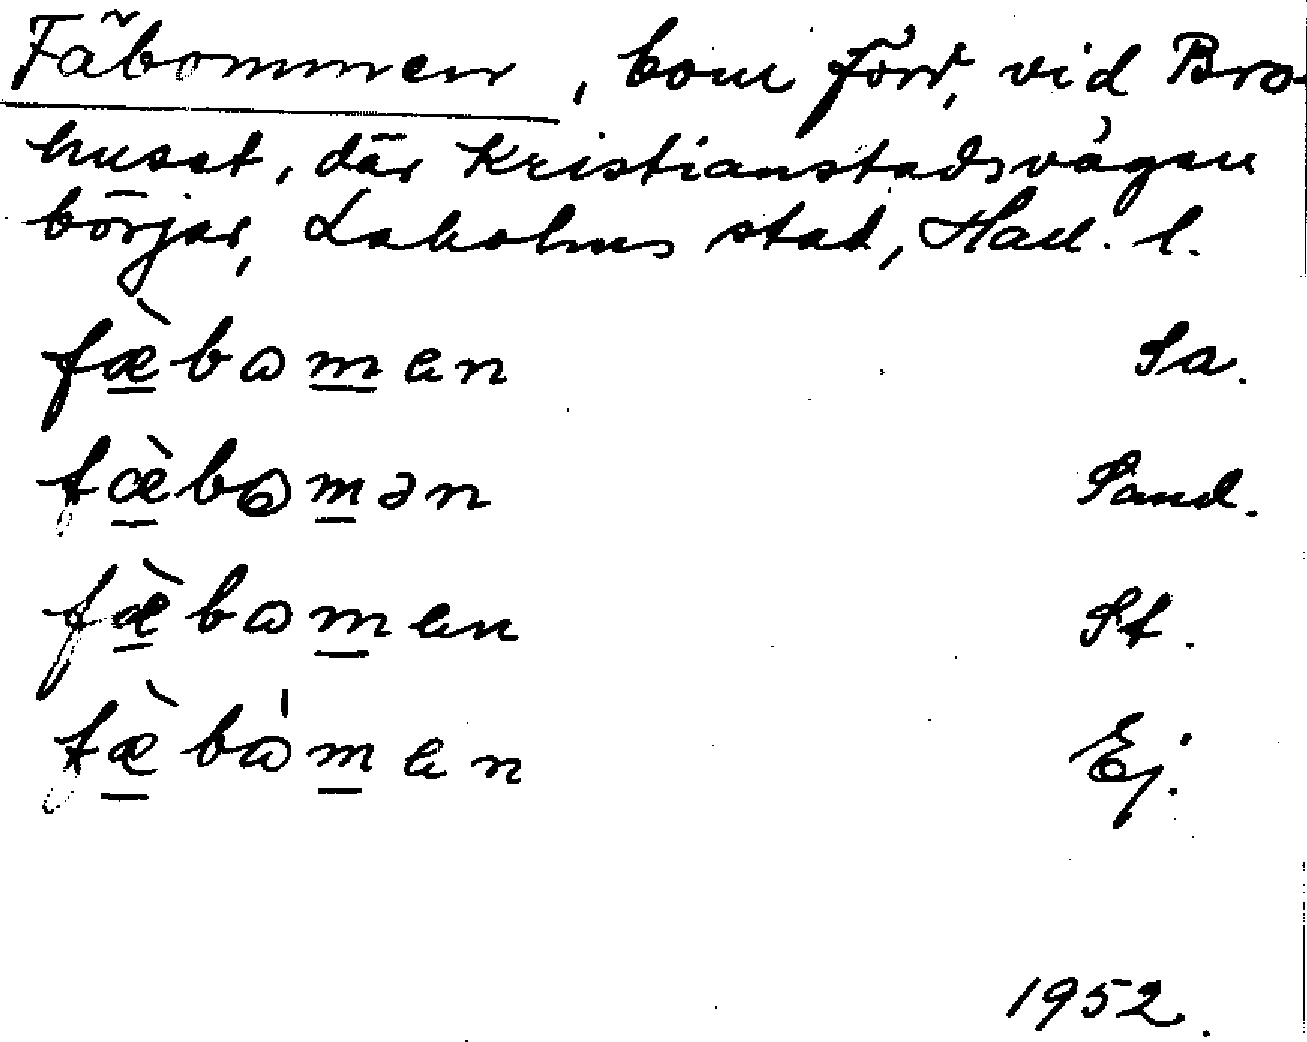 Fäbommen, bom förr, vid Bro-
huset, där Kristianstadsvägen
börjar, Laholms stad, Hall. l.
fæ̀bωmen Sa.
fæ̀bωmən Sand.
fæ̀bωmen St.
fæ̀bω̍men Ej.
1952.